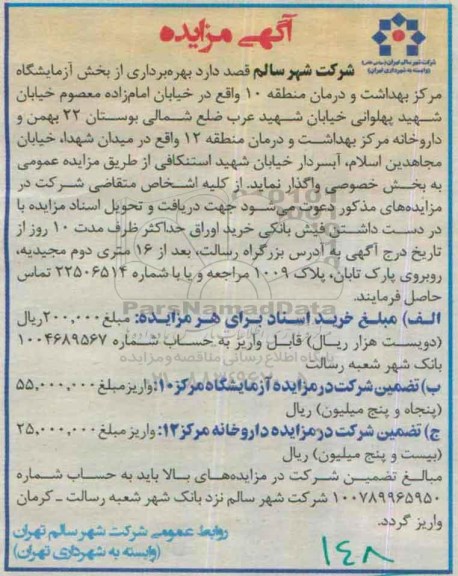 آگهی مزایده
شرکت شهر سالم تهران (سهامی خاص)
(وابسته به شهرداری تهران)
شرکت شهر سالم قصد دارد بهره‌برداری از بخش آزمایشگاه
مرکز بهداشت و درمان منطقه ۱۰ واقع در خیابان امام‌زاده معصوم خیابان
شهید پهلوانی خیابان شهید عرب ضلع شمالی بوستان ۲۲ بهمن و
داروخانه مرکز بهداشت و درمان منطقه ۱۲ واقع در میدان شهدا، خیابان
مجاهدین اسلام، آبسردار خیابان شهید استنکافی از طریق مزایده عمومی
به بخش خصوصی واگذار نماید. از کلیه اشخاص متقاضی شرکت در
مزایده‌های مذکور دعوت می‌شود جهت دریافت و تحویل اسناد مزایده با
در دست داشتن فیش بانکی خرید اوراق حداکثر ظرف مدت ۱۰ روز از
تاریخ درج آگهی به آدرس بزرگراه رسالت، بعد از ۱۶ متری دوم مجیدیه،
روبروی پارک تابان، پلاک ۱۰۰۹ مراجعه و یا با شماره ۲۲۵۰۶۵۱۴ تماس
حاصل فرمایند.
ParsNamadData
الف) مبلغ خرید اسناد برای هر مزایده: مبلغ ۲۰۰,۰۰۰ ریال
(دویست هزار ریال) قابل واریز به حساب شماره ۱۰۰۴۶۸۹۵۶۷
بانک شهر شعبه رسالت
پایگاه اطلاع رسانی مناقصه و مزایده
ب) تضمین شرکت در مزایده آزمایشگاه مرکز ۱۰: واریز مبلغ ۵۵,۰۰۰,۰۰۰
(پنجاه و پنج میلیون) ریال
ج) تضمین شرکت در مزایده داروخانه مرکز ۱۲: واریز مبلغ ۲۵,۰۰۰,۰۰۰
(بیست و پنج میلیون) ریال
مبالغ تضمین شرکت در مزایده‌های بالا باید به حساب شماره
۱۰۰۷۸۹۹۶۵۹۵۰ شرکت شهر سالم نزد بانک شهر شعبه رسالت ـ کرمان
واریز گردد.
روابط عمومی شرکت شهر سالم تهران
(وابسته به شهرداری تهران)
۱۴۸